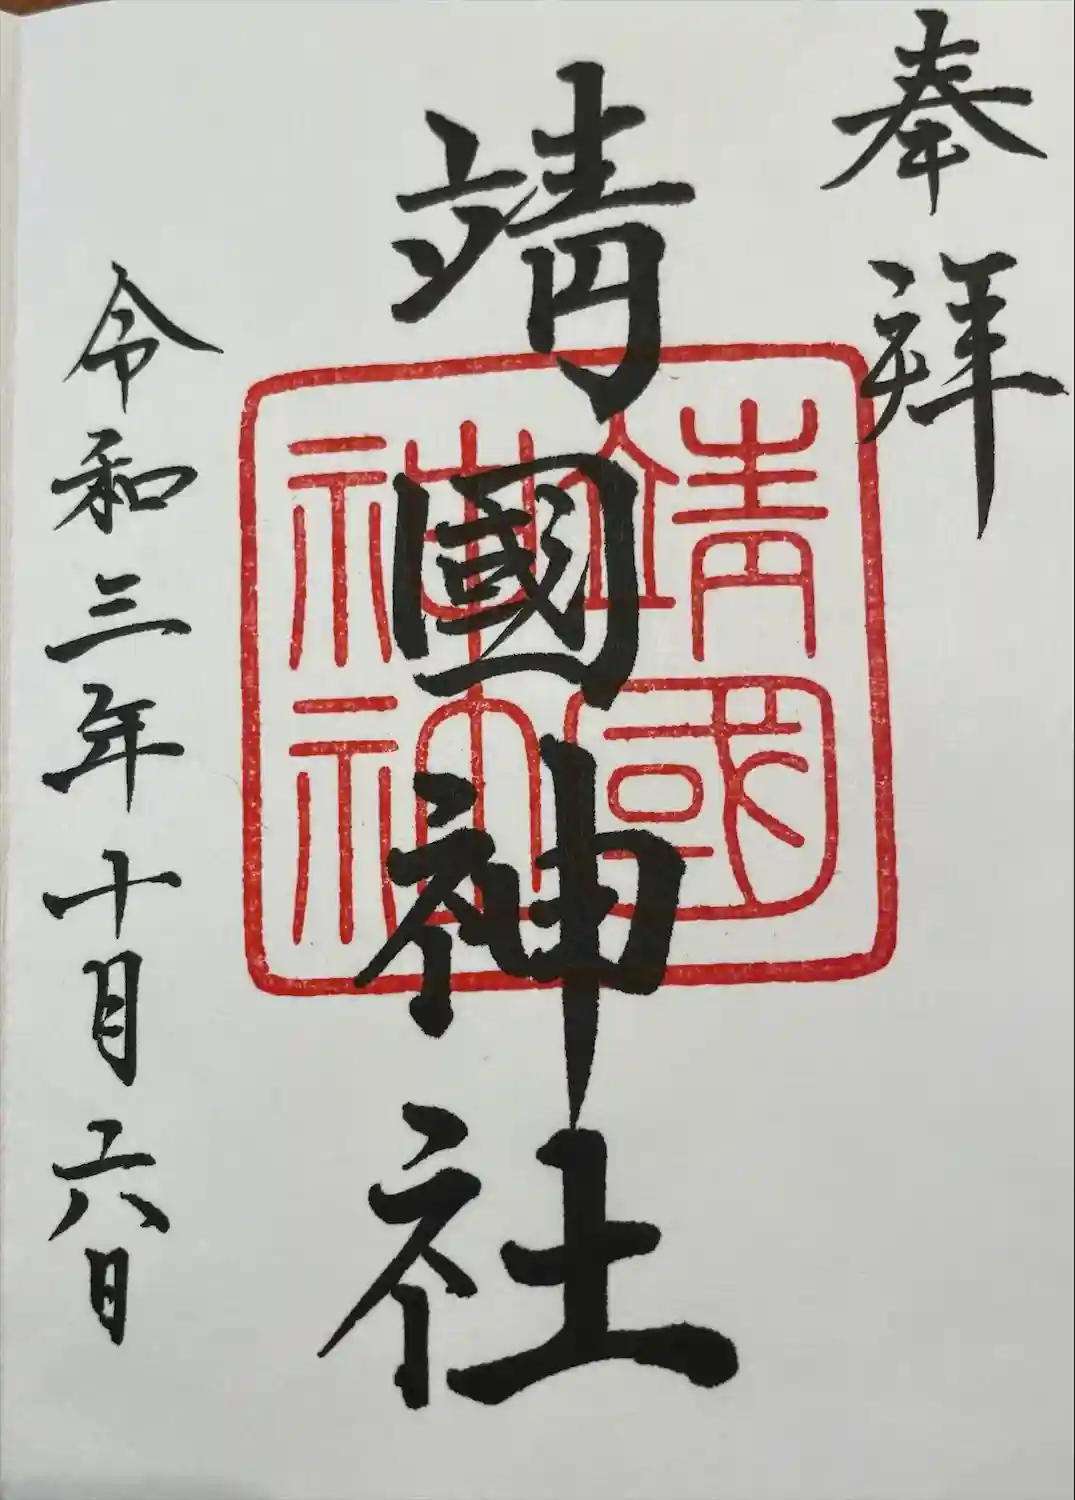 奉拝
靖國神社
靖國
神社
令和三年十月六日